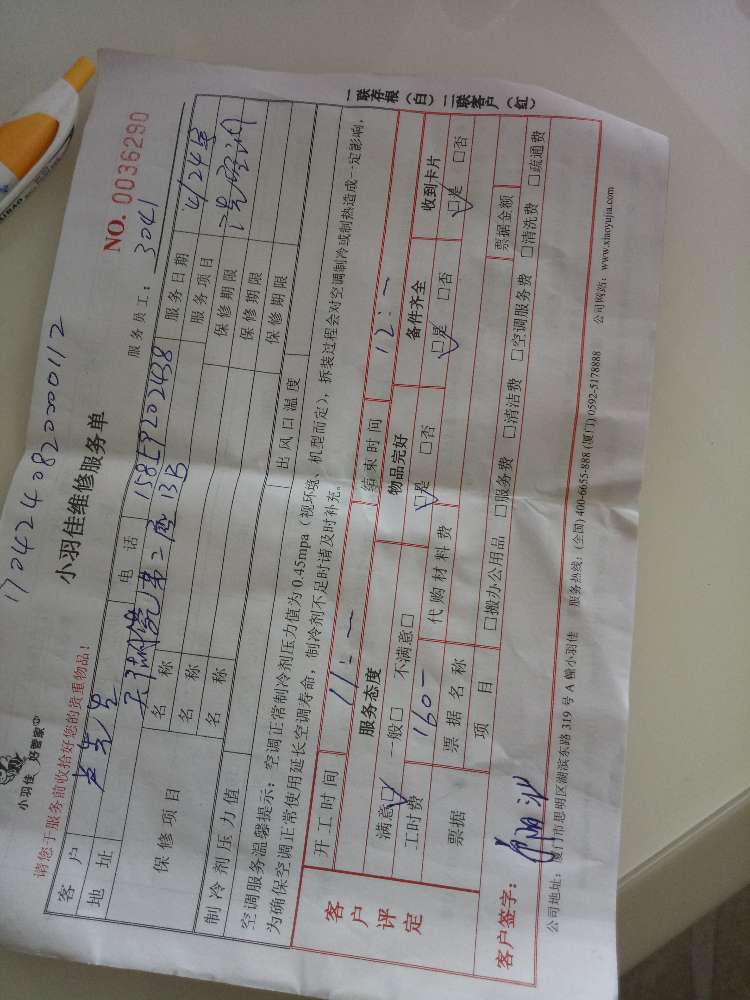 小羽佳 好管家
17042408200001​12
小羽佳维修服务单
NO. 0036290
请您于服务前收拾好您的贵重物品!
服务员工: 3041
客户 电话 服务日期 4/24
地址 天湖苑 第二 13B 服务项目 洗空调
保修项目 名称 保修期限
名称 保修期限
名称 保修期限
制冷剂压力值 出风口温度
空调服务温馨提示: 空调正常制冷剂压力值为0.45mpa (视环境、机型而定), 拆装过程会对空调制冷或制热造成一定影响,
为确保空调正常使用延长空调寿命, 制冷剂不足时请及时补充。
一联存根 (白) 二联客户 (红)
客户评定
开工时间 11:- 结束时间 12:-
服务态度 物品完好 备件齐全 收到卡片
满意□ 一般□ 不满意□ □是 □否 □是 □否 □是 □否
工时费 160- 代购材料费
票据 票据名称 票据金额
项目 □搬办公用品 □服务费 □清洁费 □空调服务费 □清洗费 □疏通费
客户签字:
公司地址: 厦门市思明区湖滨东路319号A幢小羽佳 服务热线: (全国) 400-6655-888 (厦门) 0592-5178888 公司网站: www.xiaoyujia.com